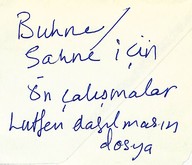 Buhne/
Sahne için
ön çalışmalar
Lütfen dağılmasın
dosya